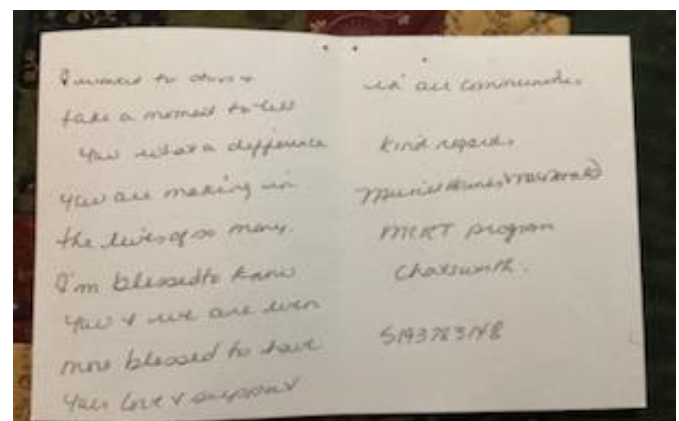 I wanted to stop &
take a moment to tell
you what a difference
you are making in
the lives of so many.
I'm blessed to know
you & we are even
more blessed to have
your love & support
in our communities
Kind regards
Muriel
MCRT program
Chatsworth.